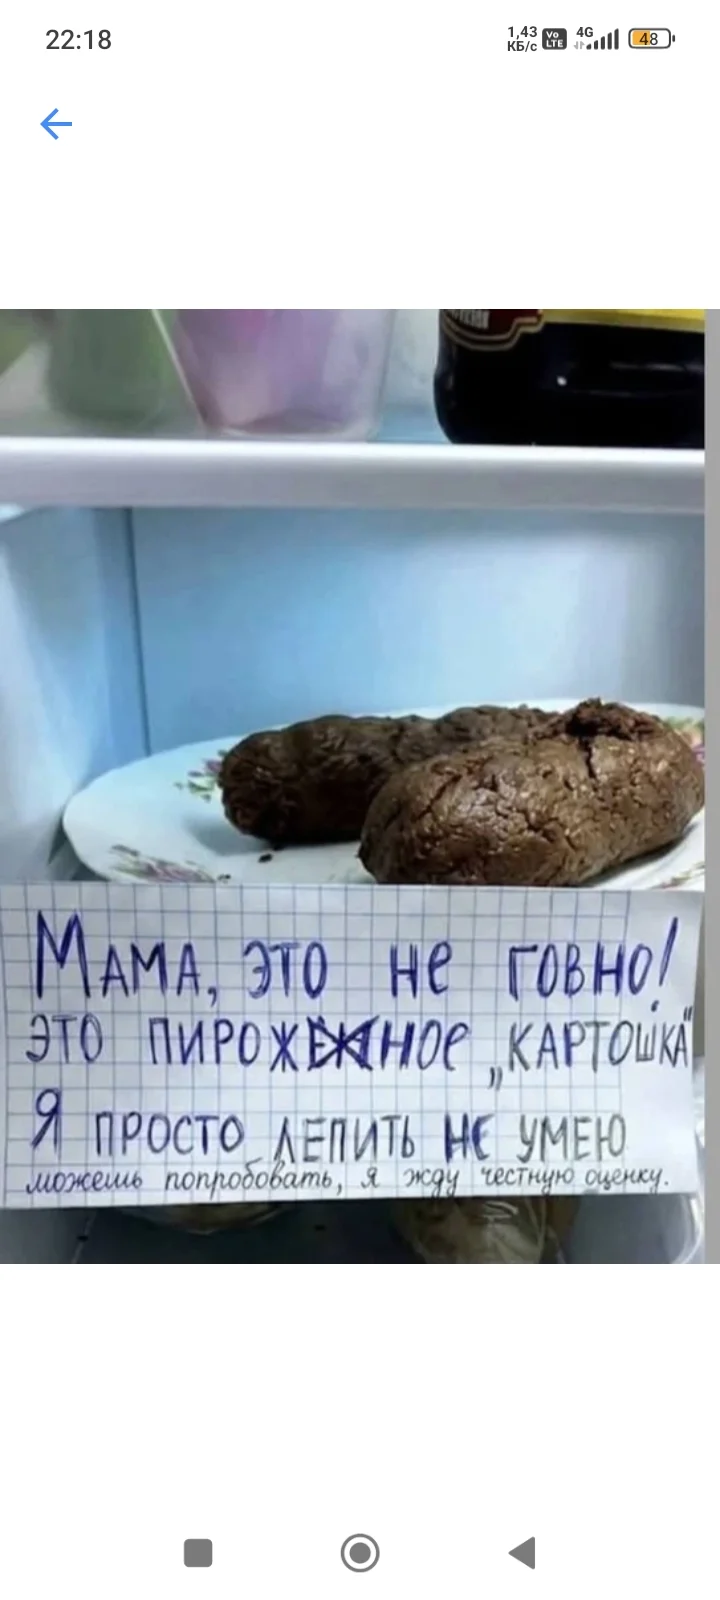 22:18
1,43
КБ/с
Vo
LTE
4G
48
Мама, это не говно!
это пирожное „картошка"
Я просто лепить не умею
можешь попробовать, я жду честную оценку.